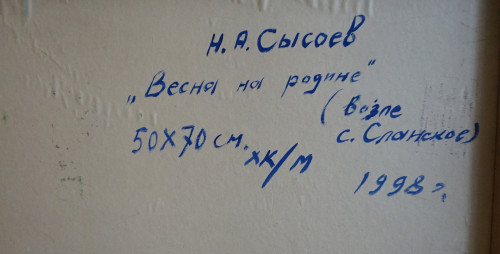 Н.А.Сысоев
„Весна на родине"
(возле
с. Сланское)
50х70 см.
хк/м
1998г.